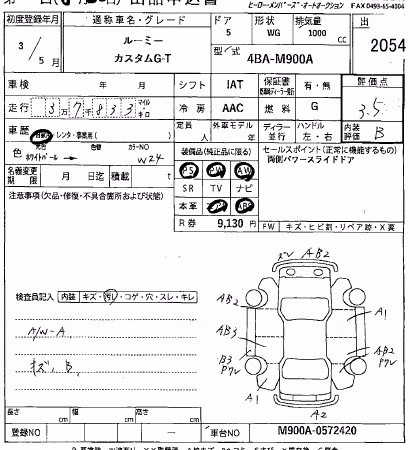 ヒーローメンバーズ・オートオークション FAX0493-65-4004
初度登録年月 通称車名・グレード ドア 形状 排気量 出
3 / 5 月 ルーミー カスタムG-T 5 WG 1000 CC 2054
型式 4BA-M900A
車検 年 月 シフト IAT 保証書 有・無 評価点
走行 3万7千833 マイル キロ 冷房 AAC 燃料 G 3.5
車歴 自家用 レンタ・事業用( ) 定員 人 外車モデル 年 ディーラー 並行 ハンドル 左・右 内装評価 B
色 元色 ホワイトパール → 色替 カラーNO W24
装備品(純正品に限る) セールスポイント(正常に機能するもの)
両側パワースライドドア
PS PW AW
名義変更期限 月 日迄 積載 t SR TV ナビ
注意事項(欠品・修復・不具合箇所および状態) 本革
R券 9,130 円 FW キズ・ヒビ割・リペア跡・X要
検査員記入 内装 キズ・汚レ・コゲ・穴・スレ・キレ
A/W-A
キズ、B
AB2
AB2
AB3
B3
Pワレ
A1
A1
AB2
Pワレ
A2
長さ cm 幅 cm 高さ cm
登録NO — 車台NO M900A-0572420